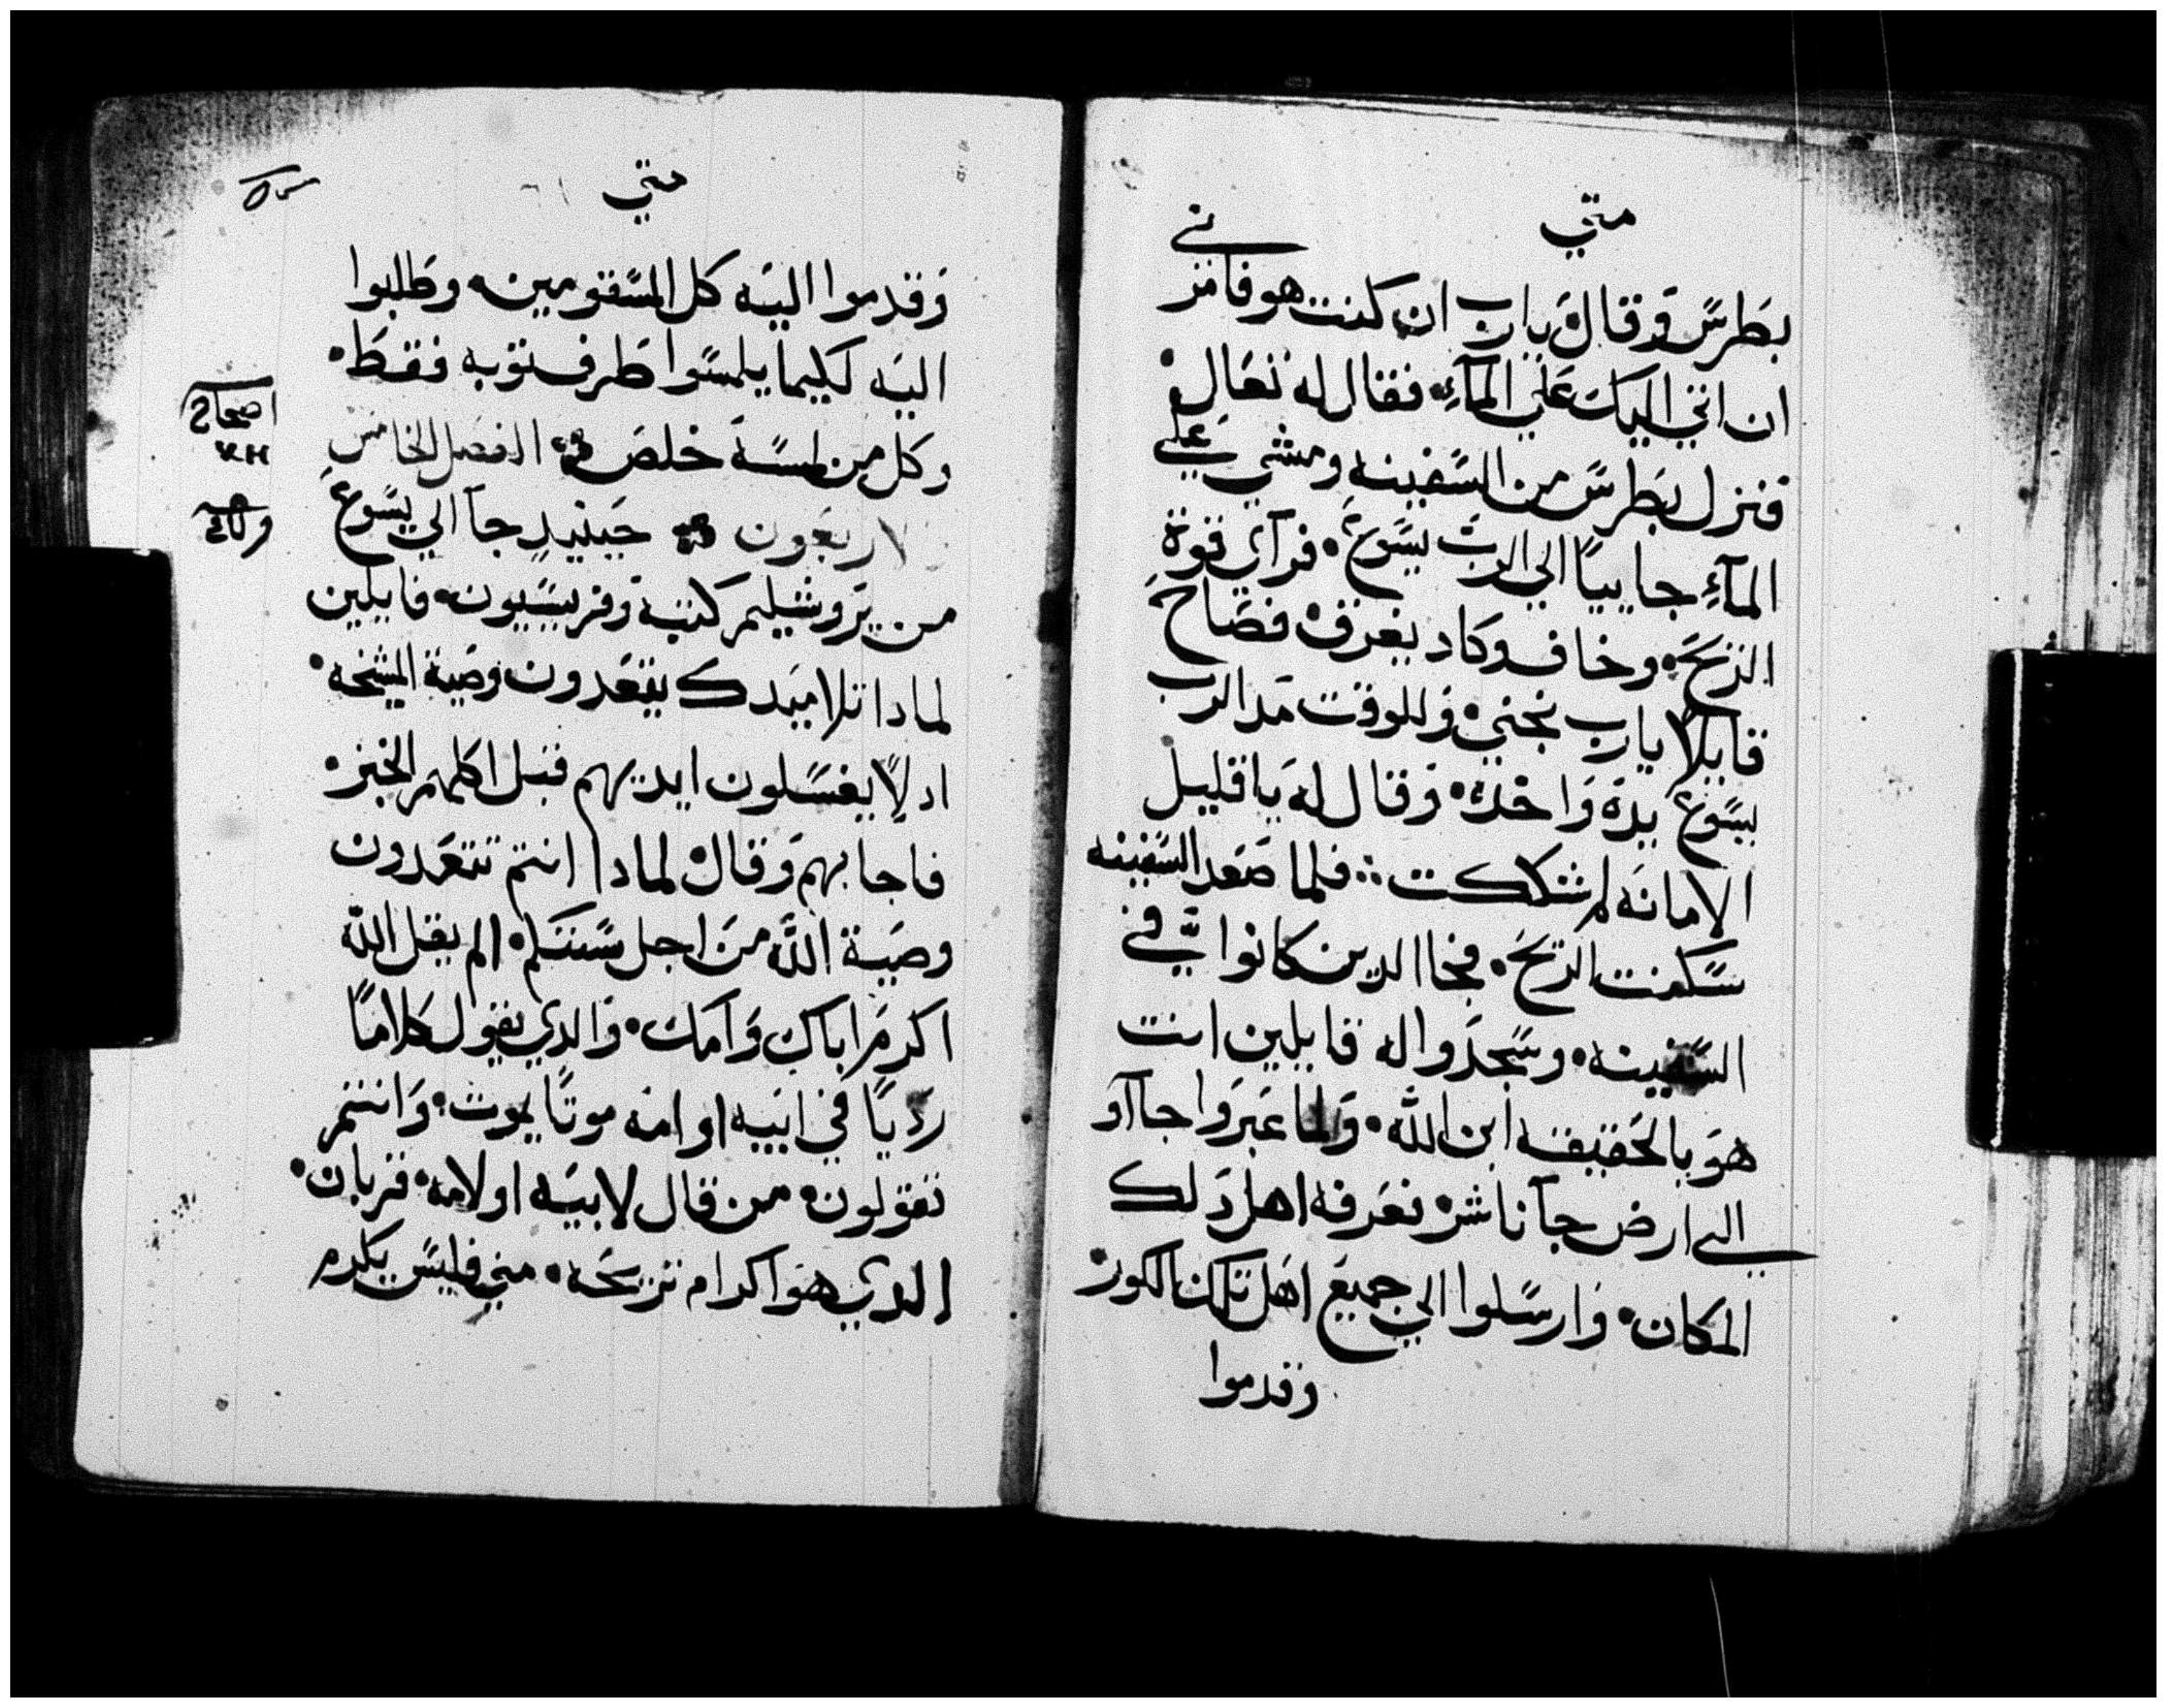 متي
بطرس وقال يا رب ان كنت هو فامرني
ان اتي اليك علي المآء فقال له تعال
فنزل بطرس من السفينه ومشي علي
المآءِ جاييًا الي الرب يسوع فرآي قوة
الريح وخاف وكاد يغرق فصاح
قايلاً يارب نجني وللوقت مد الرب
يسوع يده واخده وقال له يا قليل
الامانه لم شككت فلما صعد السفينه
سكنت الريح فجا الدين كانوا في
السفينه وسجدوا له قايلين انت
هو بالحقيقه ابن الله ولما عبروا جآاو
الي ارض جآناشر فعرفه اهل دلك
المكان وارسلوا الي جميع اهل تلك الكور
وقدموا
متي
وقدموا اليه كل المسقومين وطلبوا
اليه لكيما يلمسوا طرف توبه فقط
وكل من لمسه خلص الفصل الخامس
لاربعون حينيد جآ الي يسوع
من يروشليم كتبة وفريسيون قايلين
لمادا تلاميدك يتعدون وصية المشيخه
اد لا يغسلون ايديهم قبل اكلهم الخبز
فاجابهم وقال لمادا انتم تتعدون
وصية الله من اجل سنتكم الم يقل الله
اكرم اباك وامك والدي يقول كلامًا
رديًا في ابيه او امه موتًا يموت وانتم
تقولون من قال لابيه او لامه قربان
الدي هو اكرام تربحه مني فليس يكرم
اصحاح